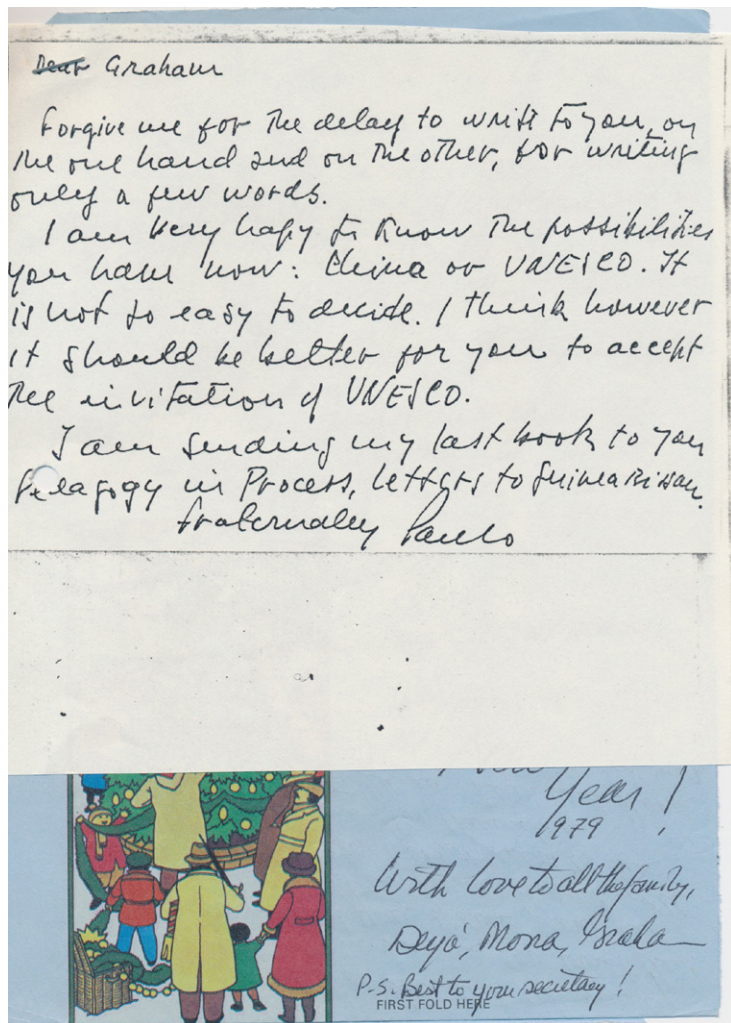 Dear Graham
Forgive me for the delay to write to you, on
the one hand and on the other, for writing
only a few words.
I am very hapy to know the possibilities
you have now: China or UNESCO. It
is not so easy to decide. I think however
it should be better for you to accept
the invitation of UNESCO.
I am sending my last book to you
Pedagogy in Process, Letters to Guinea Bissau.
Fraternaley Paulo
Year!
1979
With love to all the family,
Deyá, Mona, Graham
P.S. Best to your secretary!
FIRST FOLD HERE